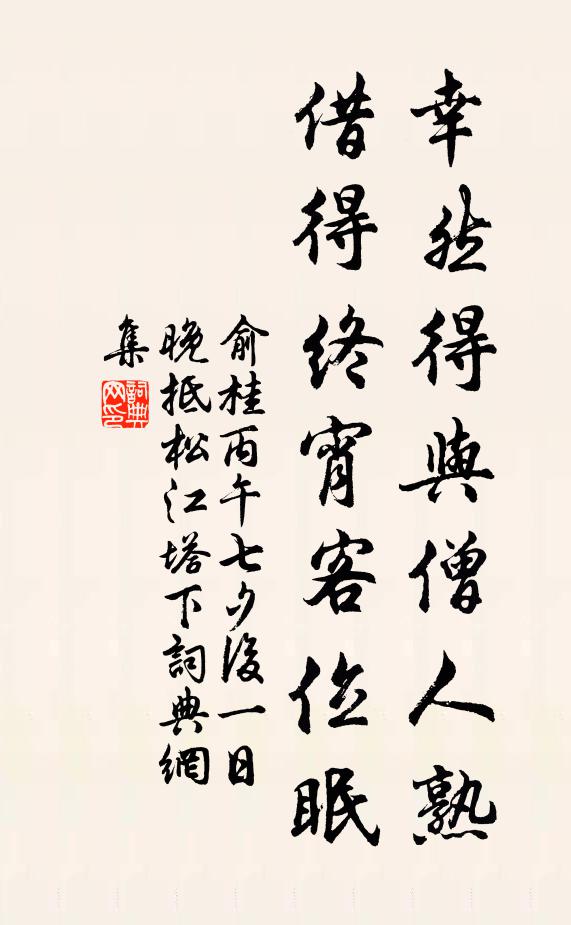 幸然得與僧人熟
借得終宵客位眠
俞桂丙午七夕後一日
晚抵松江塔下詞典網
集
詞典
网印